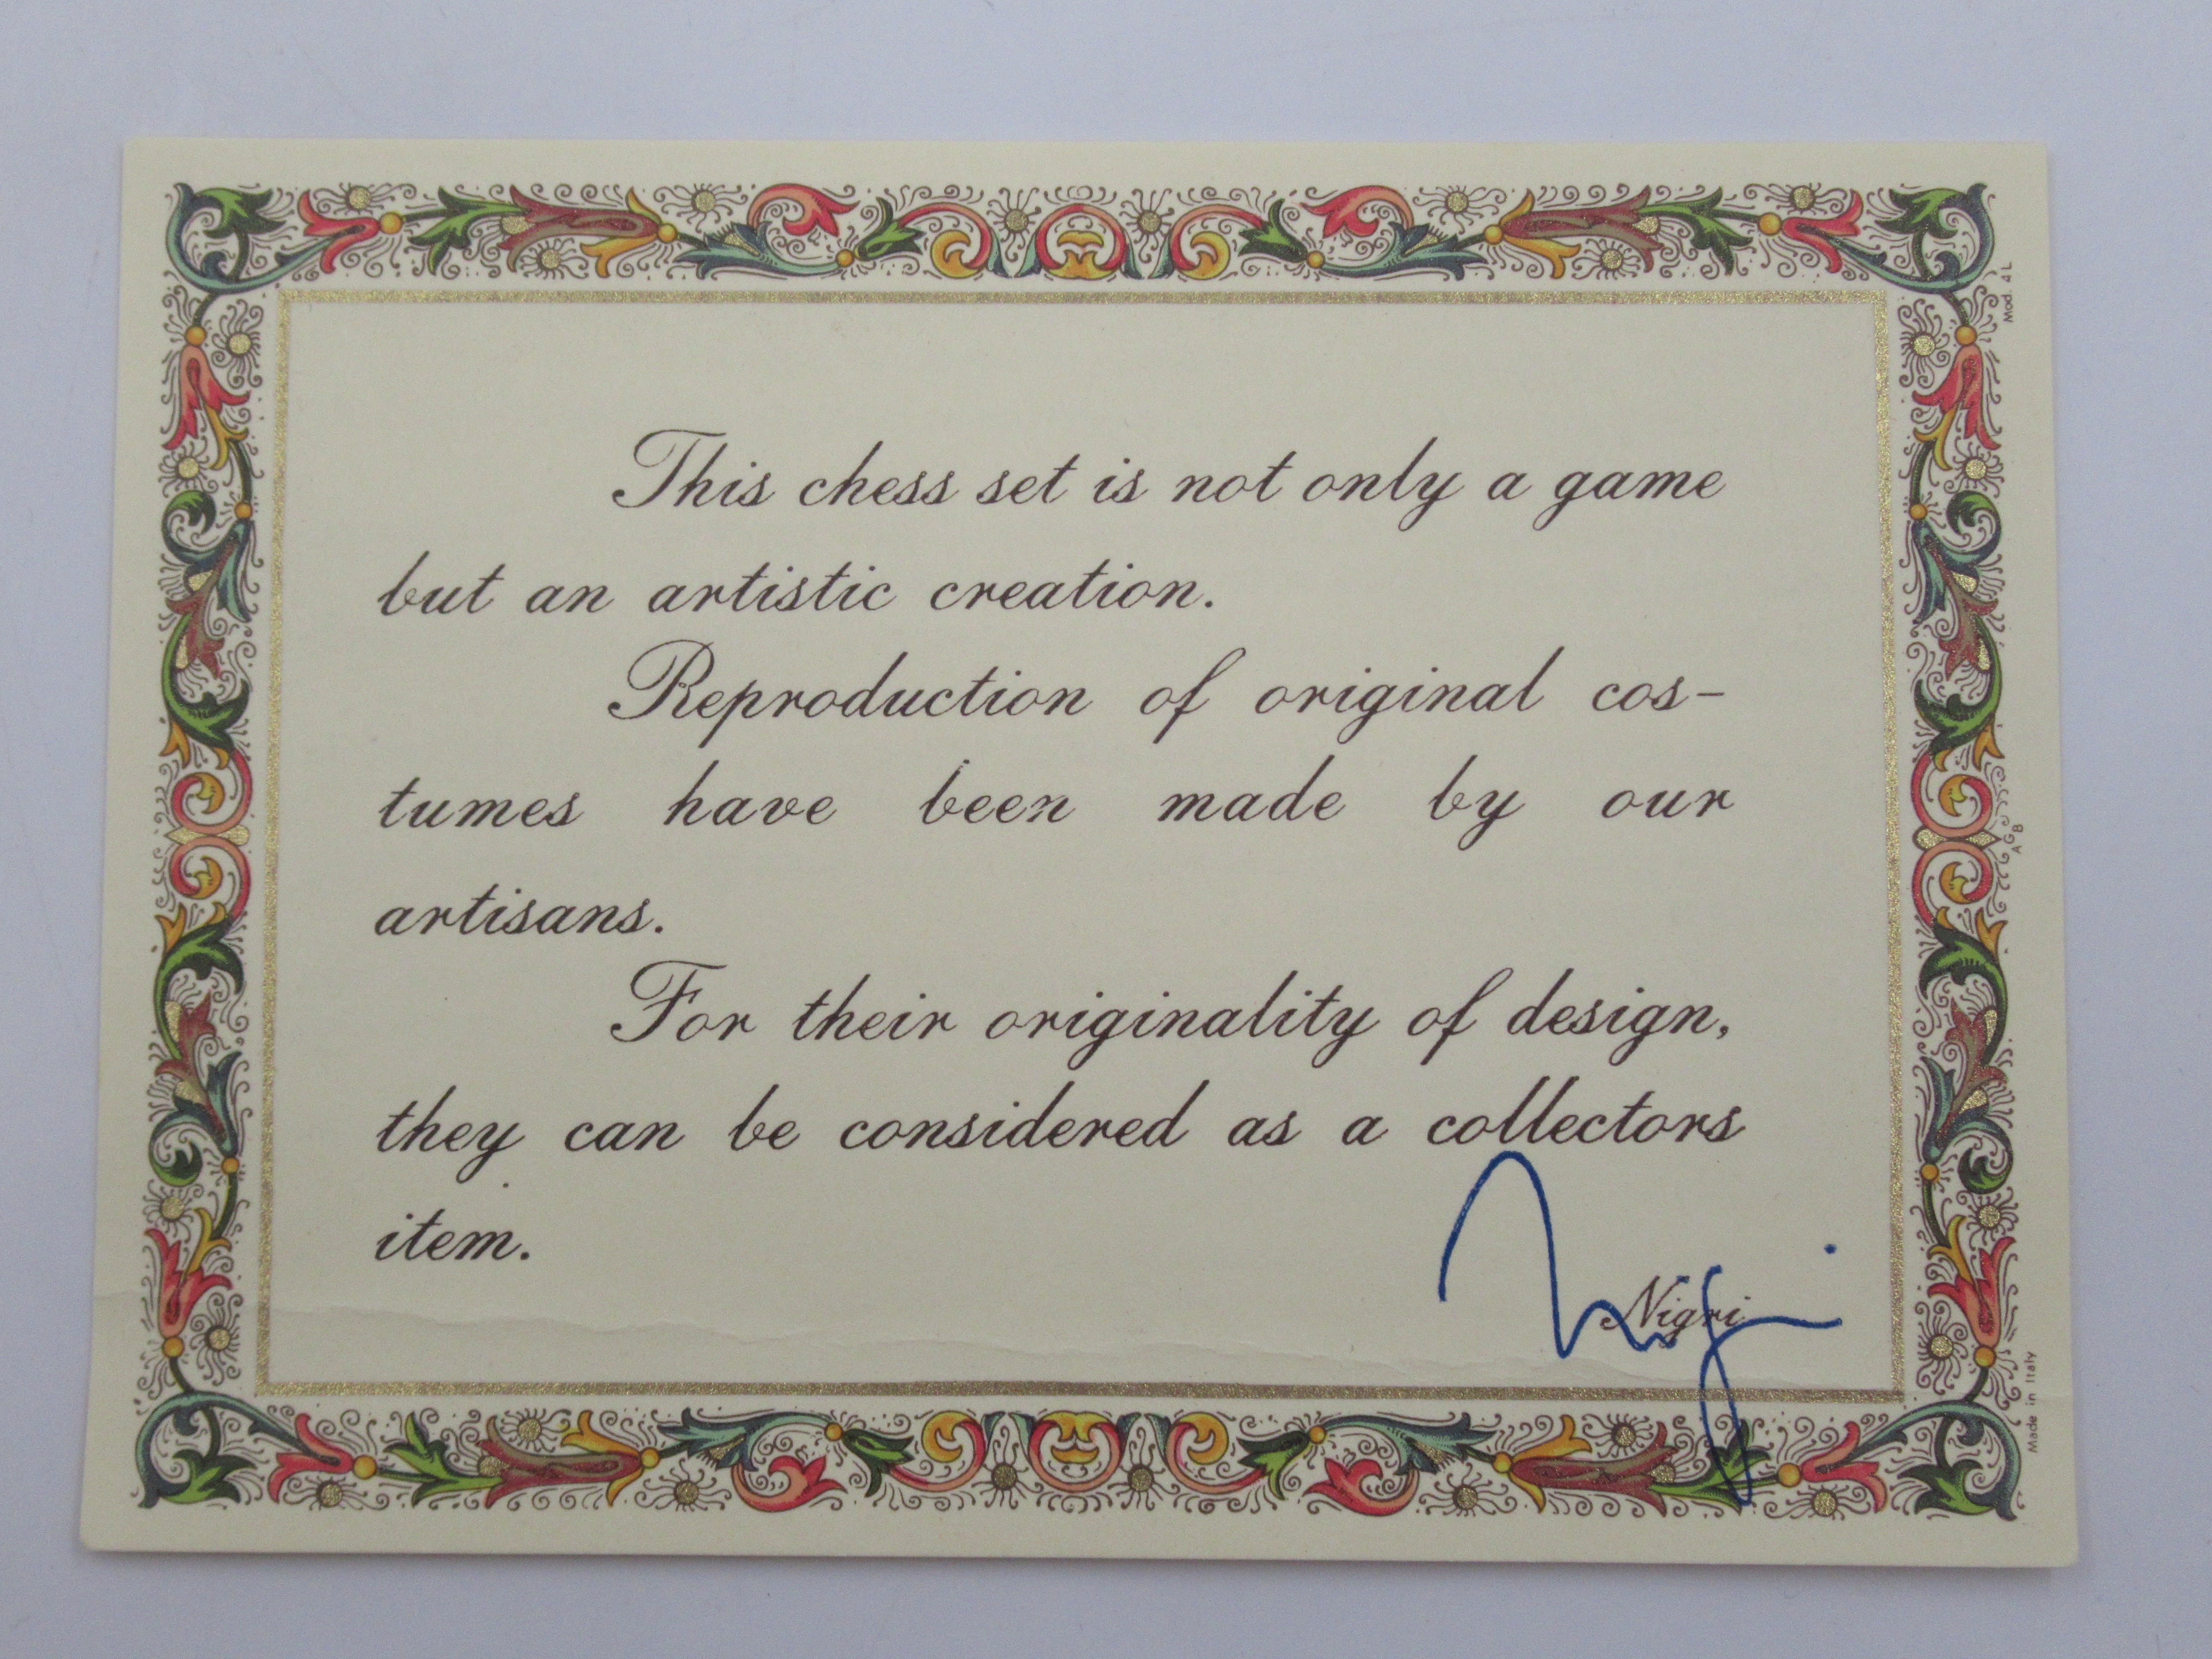 This chess set is not only a game
but an artistic creation.
Reproduction of original cos-
tumes have been made by our
artisans.
For their originality of design,
they can be considered as a collectors
item.
Nigri
Nigri
Mod. 4L
AGB
Made in Italy